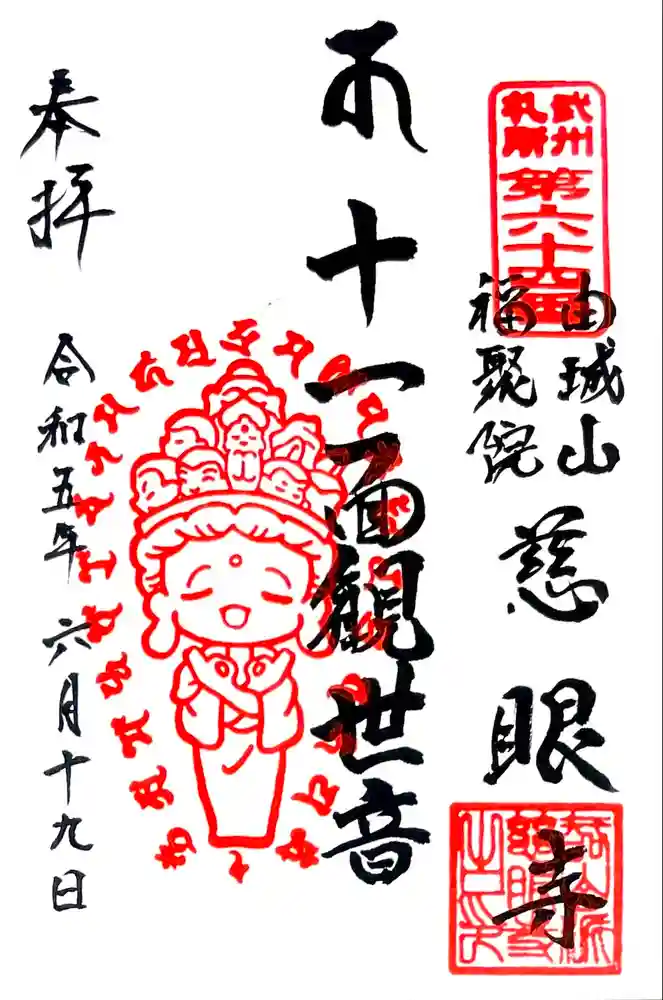 武州
札所
第六十四番
由城山
福聚院
慈眼寺
十一面観世音
奉拝
令和五年 六月十九日